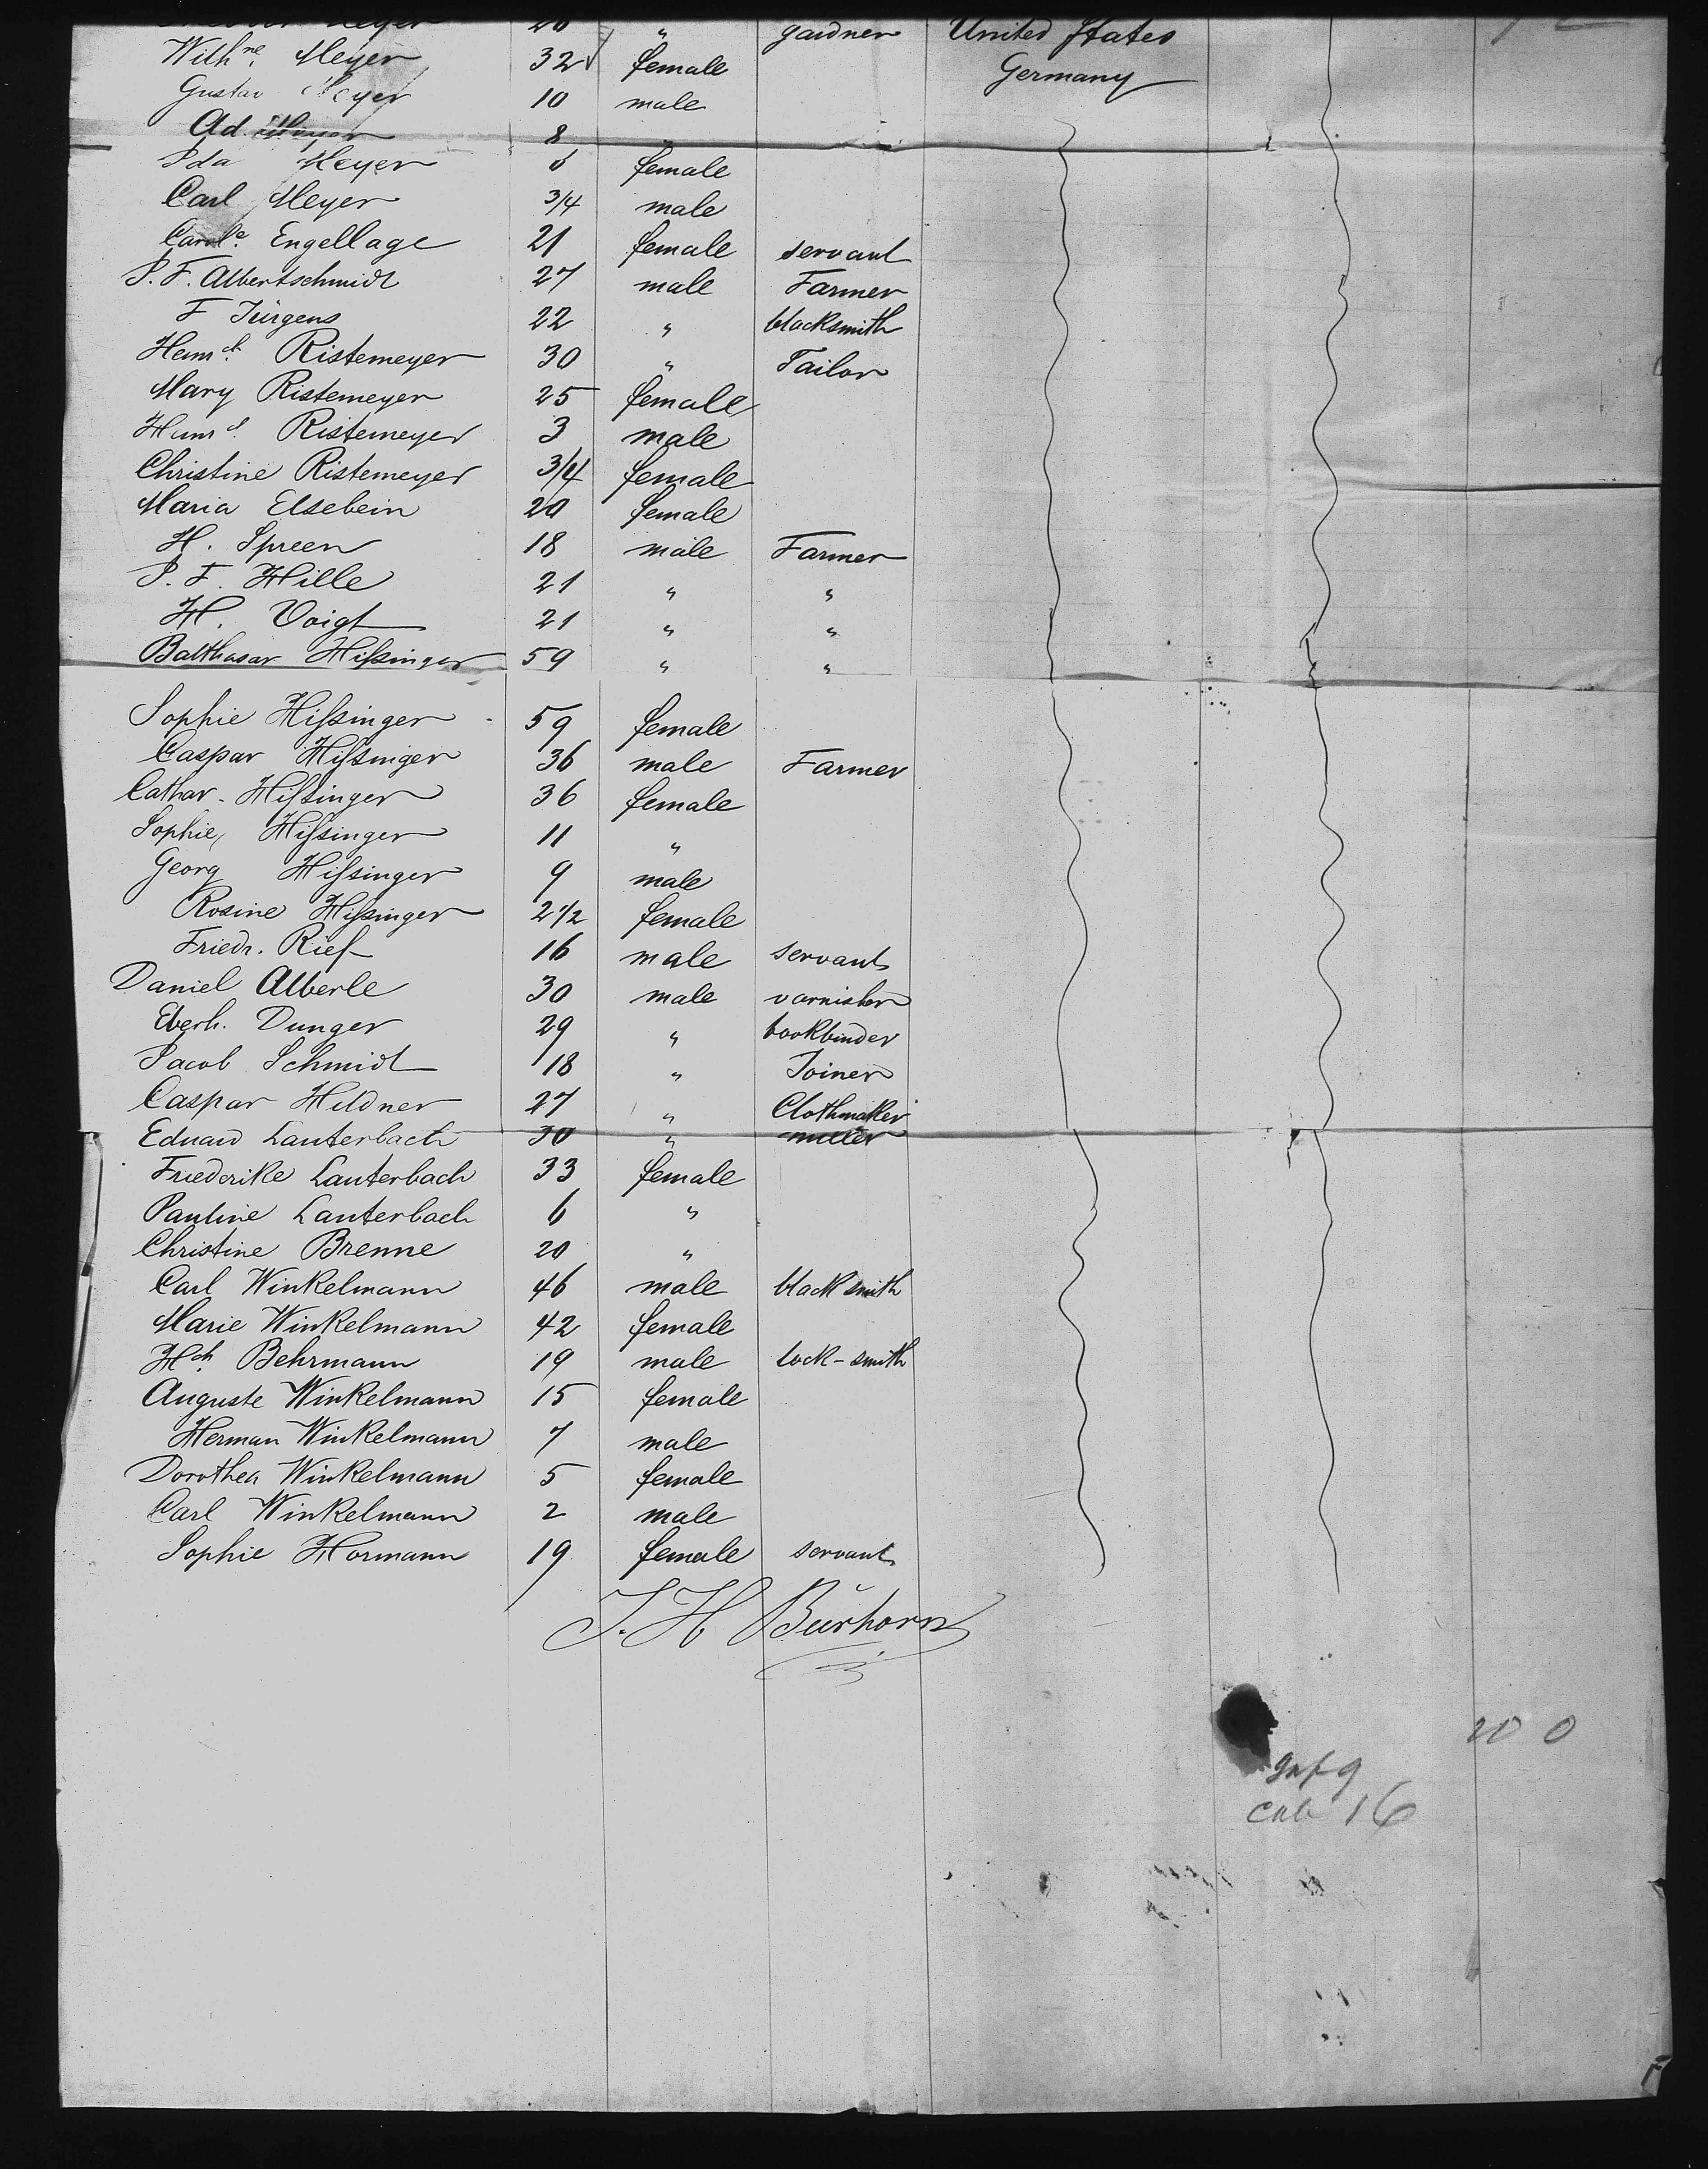 Meyer 28 " gardner United States
Wilhne. Meyer 32 female Germany
Gustav Meyer 10 male
Ad. Meyer 8 "
Ida Meyer 6 female
Carl Meyer 3/4 male
Carole. Engellage 21 female servant
P. F. Albertschmidt 27 male Farmer
F Jürgens 22 " blacksmith
Heinrch. Ristemeyer 30 " Tailor
Mary Ristemeyer 25 female
Heinrch. Ristemeyer 3 male
Christine Ristemeyer 3/4 female
Maria Elsebein 20 female
H. Spreen 18 male Farmer
P. F. Hille 21 " "
H. Voigt 21 " "
Balthasar Hißinger 59 " "
Sophie Hißinger 59 female
Caspar Hißinger 36 male Farmer
Cathar. Hißinger 36 female
Sophie Hißinger 11 "
Georg Hißinger 9 male
Rosine Hißinger 2 1/2 female
Friedr. Rief 16 male servant
Daniel Alberle 30 male varnisher
Eberh. Dunger 29 " bookbinder
Jacob Schmidt 18 " Joiner
Caspar Hildner 27 " Clothmaker
Eduard Lauterbach 30 " miller
Friederike Lauterbach 33 female
Pauline Lauterbach 6 "
Christine Brenne 20 "
Carl Winkelmann 46 male black smith
Marie Winkelmann 42 female
Hch. Behrmann 19 male lock-smith
Auguste Winkelmann 15 female
Herman Winkelmann 7 male
Dorothea Winkelmann 5 female
Carl Winkelmann 2 male
Sophie Hormann 19 female servant
J. H Bürhorn
20 0
inf 9
cab 16